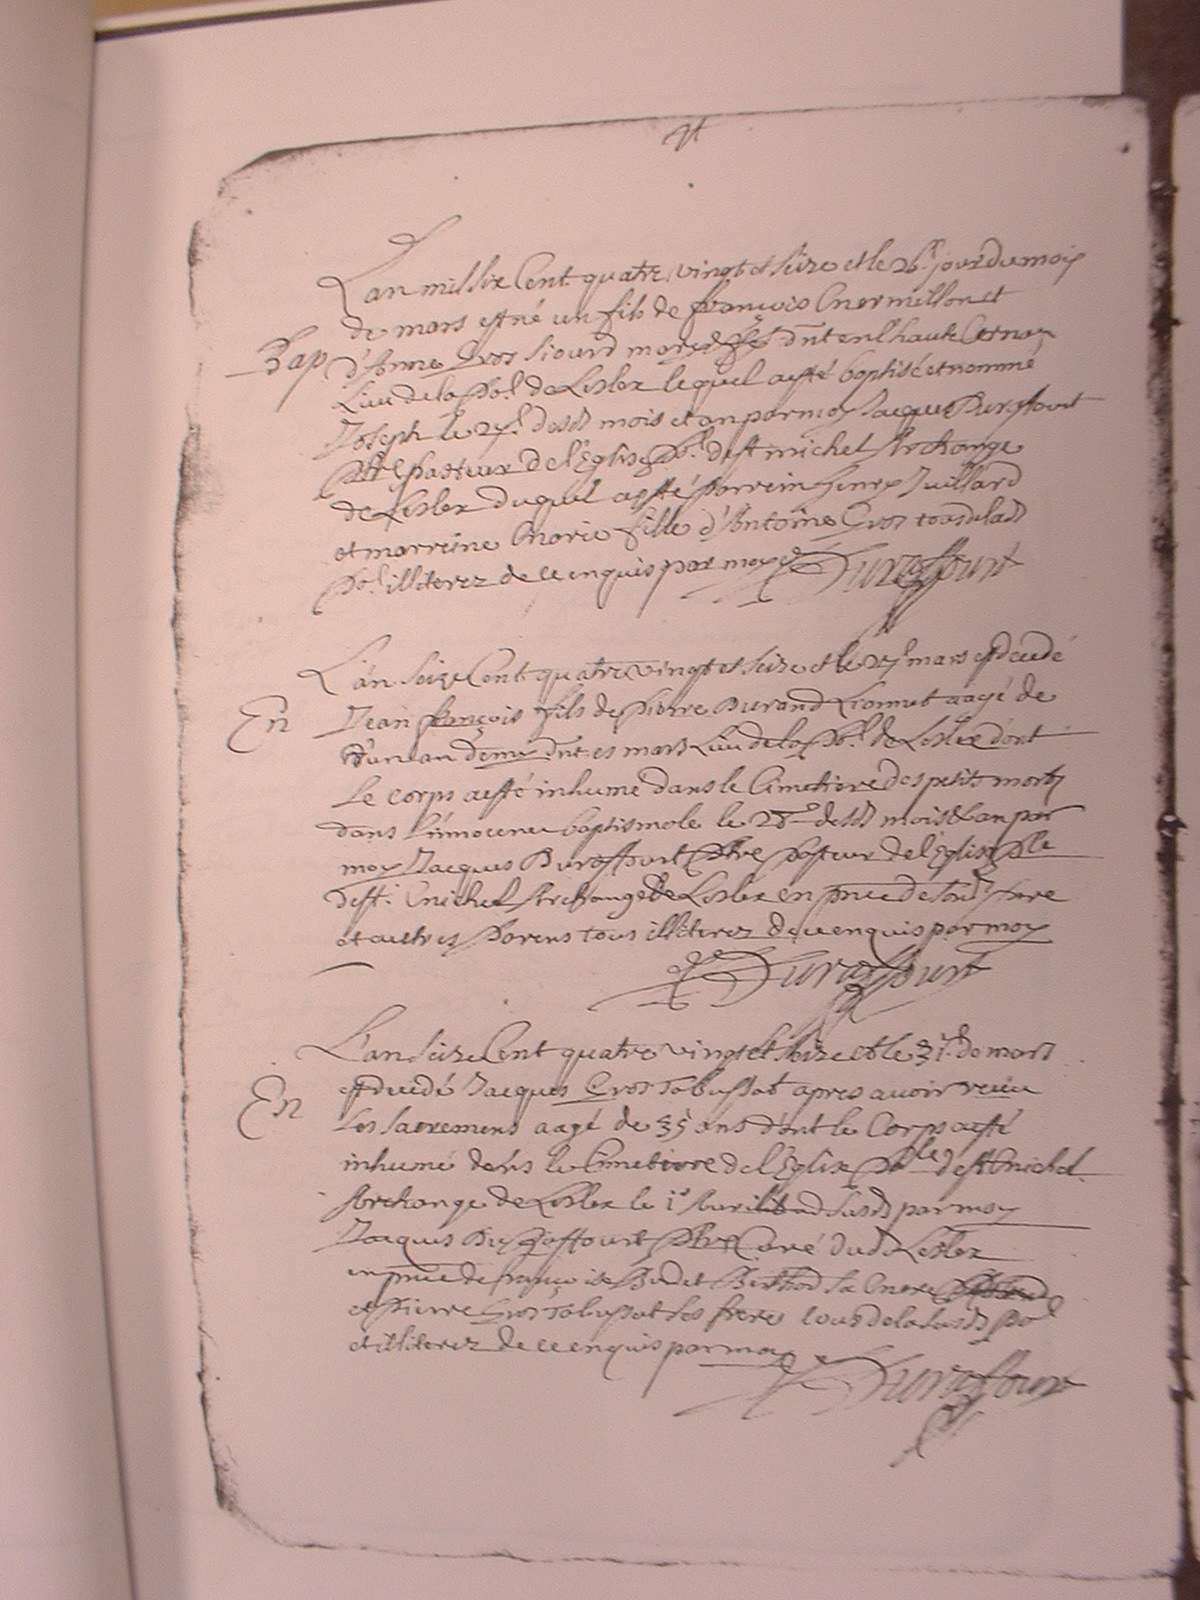 L'an mil six Cent quatre vingt et seize et le 26e jour du mois
de mars est né un fils de françois Mermillon et
Bap
d'Anne Gros
Lieu de la de Lesler lequel a esté baptisé et nommé
Joseph le 27e desd mois et an par moy Jacques Duraffourt
Pbre pasteur de l'Eglise de st michel Archange
de Lesler duquel a esté parrein henry Juillard
et marreine Marie fille d'Antoine Gros tous de lad
illiterez de ce enquis par moy
Duraffourt
L'an seize Cent quatre vingt et seize et le 27e mars est decedé
En
Jean françois fils de Pierre Durand aagé de
d'un an demy Lieu de la de Lesler dont
Le corps a esté inhumé dans le Cimetiere des petits morts
dans l'innocence baptismale le 28e desd mois et an par
moy Jacques Duraffourt Pbre Pasteur de l'Eglise Plle
de st. Michel Archange de Lesler en pnce de sond pere
et autres Parens tous illiterez de ce enquis par moy
Duraffourt
L'an seize Cent quatre vingt et seize et le 31e de mars
En
est decedé Jacques Gros Tabussat apres avoir receu
Les sacremens aagé de 35 ans dont le Corps a esté
inhumé dans le Cimetiere de l'Eglise de st Michel
Archange de Lesler le 1e Avril par moy
Jacques Duraffourt Pbre Curé dud Lesler
en pnce de françoise sa Mere
et Pierre Gros Tabussat ses freres tous de la susd
et illiterez de ce enquis par moy
Duraffourt